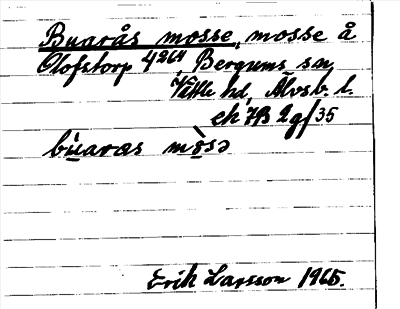 Buarås mosse, mosse å
Olofstorp 4²⁶⁴ Bergums sn,
Vättle hd, Älvsb. l.
ek 7B 2g/35
bùaras mòsə
Erik Larsson 1965.